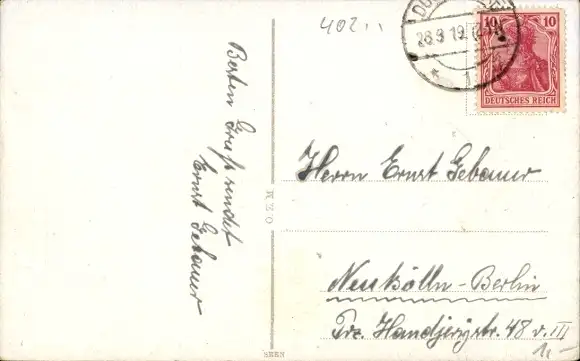 402
28.9.19
10 10
DEUTSCHES REICH
Besten Gruß sendet
Ernst Gebauer
M.S.O.
Herrn Ernst Gebauer
Neukölln-Berlin
Prz. Handjerystr. 48 v. III